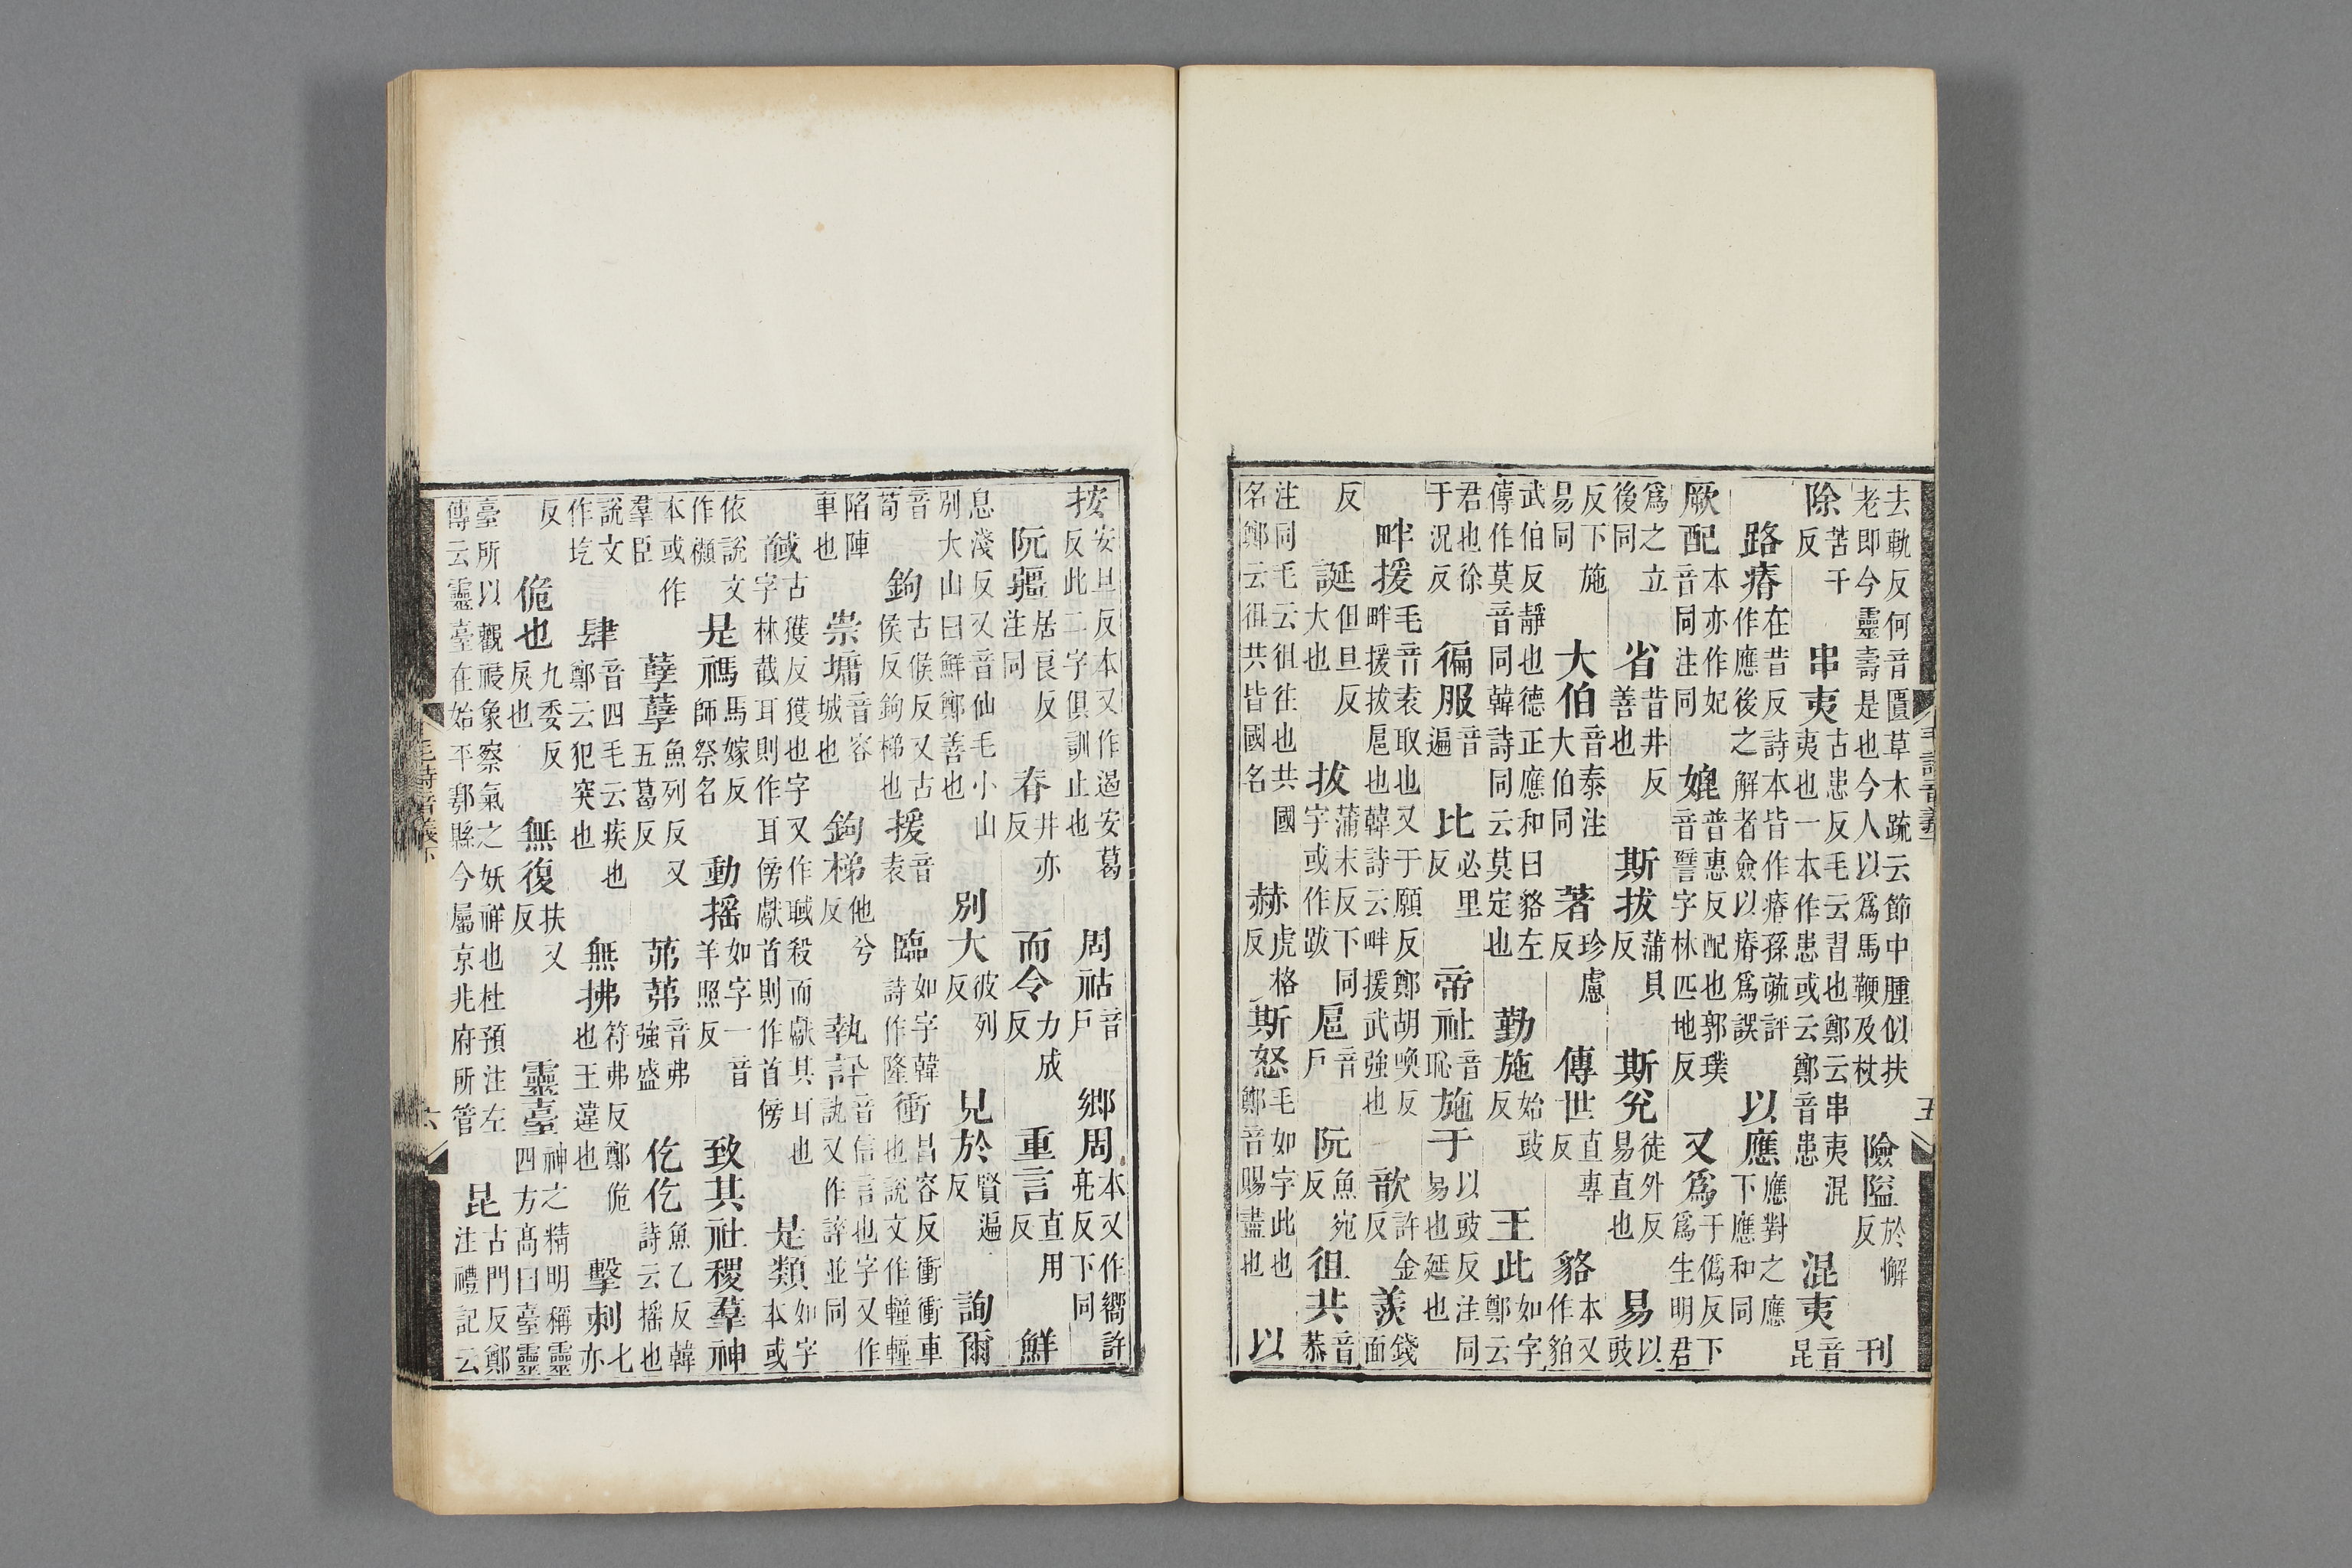 去軌反何音匱草木疏云節中腫似扶老即今靈壽是也今人以爲馬鞭及杖 險隘 於懈反 刊
除 苦干反 串夷 古患反毛云習也鄭云串夷混夷也一本作患或云鄭音患 混夷 音昆
路瘠 在昔反詩本皆作瘠孫蔬評作應後之解者僉以瘠爲誤 以應 應對之應下應和同
厥配 本亦作妃音同注同 媲 普惠反配也郭璞音譬字林匹地反 又爲 于僞反下爲生明君
爲之立後同 省 昔井反善也 斯拔 蒲貝反 斯兊 徒外反易直也 易 以豉
反下施易同 大伯 音泰注大伯同 著 珍慮反 傳世 直專反 貉 本又作貊
武伯反靜也德正應和曰貉左傳作莫音同韓詩同云莫定也 勤施 始豉反 王此 如字鄭云
君也徐于況反 徧服 音遍 比 必里反 帝祉 音恥 施于 以豉反注同易也延也
畔援 毛音袁取也又于願反鄭胡喚反畔援拔扈也韓詩云畔援武強也 歆 許金反 羨 錢面
反 誕 但旦反大也 拔 蒲末反下同字或作跋 扈 音戶 阮 魚宛反 徂共 音恭
注同毛云徂往也共國名鄭云徂共皆國名 赫 虎格反 斯怒 毛如字此也鄭音賜盡也 以
毛詩音義下 五
按 安旦反本又作遏安葛反此二字俱訓止也 周祜 音戶 鄉周 本又作嚮許亮反下同
阮疆 居良反注同 春 井亦反 而令 力成反 重言 直用反 鮮
息淺反又音仙毛小山別大山曰鮮鄭善也 別大 彼列反 見於 賢遍反 詢爾
音荀 鉤 古侯反又古侯反鉤梯也 援 音袁 臨 如字韓詩作隆 衝 昌容反衝衝車也說文作䡴䡴
陷陣車也 崇墉 音容城也 鉤梯 他兮反 執訊 音信言也字又作訙又作誶並同
馘 古獲反獲也字又作聝殺而獻其耳也字林截耳則作耳傍獻首則作首傍 是類 如字本或
依說文作禷 是禡 馬嫁反師祭名 動搖 如字一音羊照反 致其社稷羣神
本或作羣臣 孽孽 魚列反又五葛反 茀茀 音弗強盛 仡仡 魚乙反韓詩云搖也
說文作圪 肆 音四毛云疾也鄭云犯突也 無拂 符弗反鄭佹也王違也 擊刺 七亦
反 佹也 九委反戾也 無復 扶又反 靈臺 神之精明稱靈四方高曰臺靈
臺所以觀祲象察氣之妖祥也杜預注左傳云靈臺在始平鄠縣今屬京兆府所管 昆 古門反鄭注禮記云
毛詩音義下 六